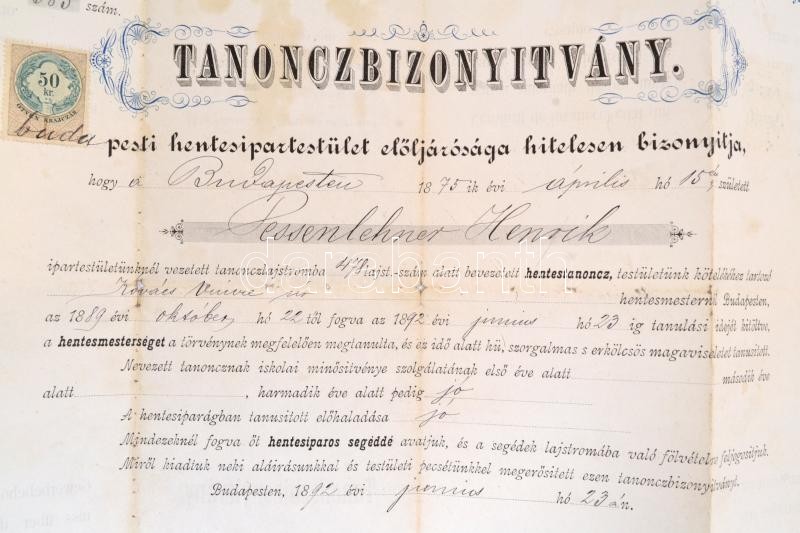 szám.
TANONCZBIZONYITVÁNY.
50
kr.
ÖTVEN KRAJCZÁR
budapesti hentesipartestület előljárósága hitelesen bizonyitja,
hogy a Budapesten 1875 ik évi április hó 15 én született
Pessenlehner Henrik
ipartestületünknél vezetett tanonczlajstromba 478 lajst.-szám alatt bevezetett hentestanoncz, testületünk kötelékéhez tartozó
Kovács hentesmesternél Budapesten,
az 1889 évi oktober hó 22 től fogva az 1892 évi junius hó 23 ig tanulási idejét kitöltve,
a hentesmesterséget a törvénynek megfelelően megtanulta, és ez idő alatt hű, szorgalmas s erkölcsös magaviseletet tanusított.
Nevezett tanoncznak iskolai minősitvénye szolgálatának első éve alatt második éve
alatt , harmadik éve alatt pedig jó
A hentesiparágban tanusított előhaladása jó,
Mindezeknél fogva őt hentesiparos segéddé avatjuk, és a segédek lajstromába való fölvételre feljogosítjuk.
Miről kiadtuk neki aláirásunkkal és testületi pecsétünkkel megerősitett ezen tanonczbizonyitványt.
Budapesten, 1892 évi junius hó 23 án.
darabanth